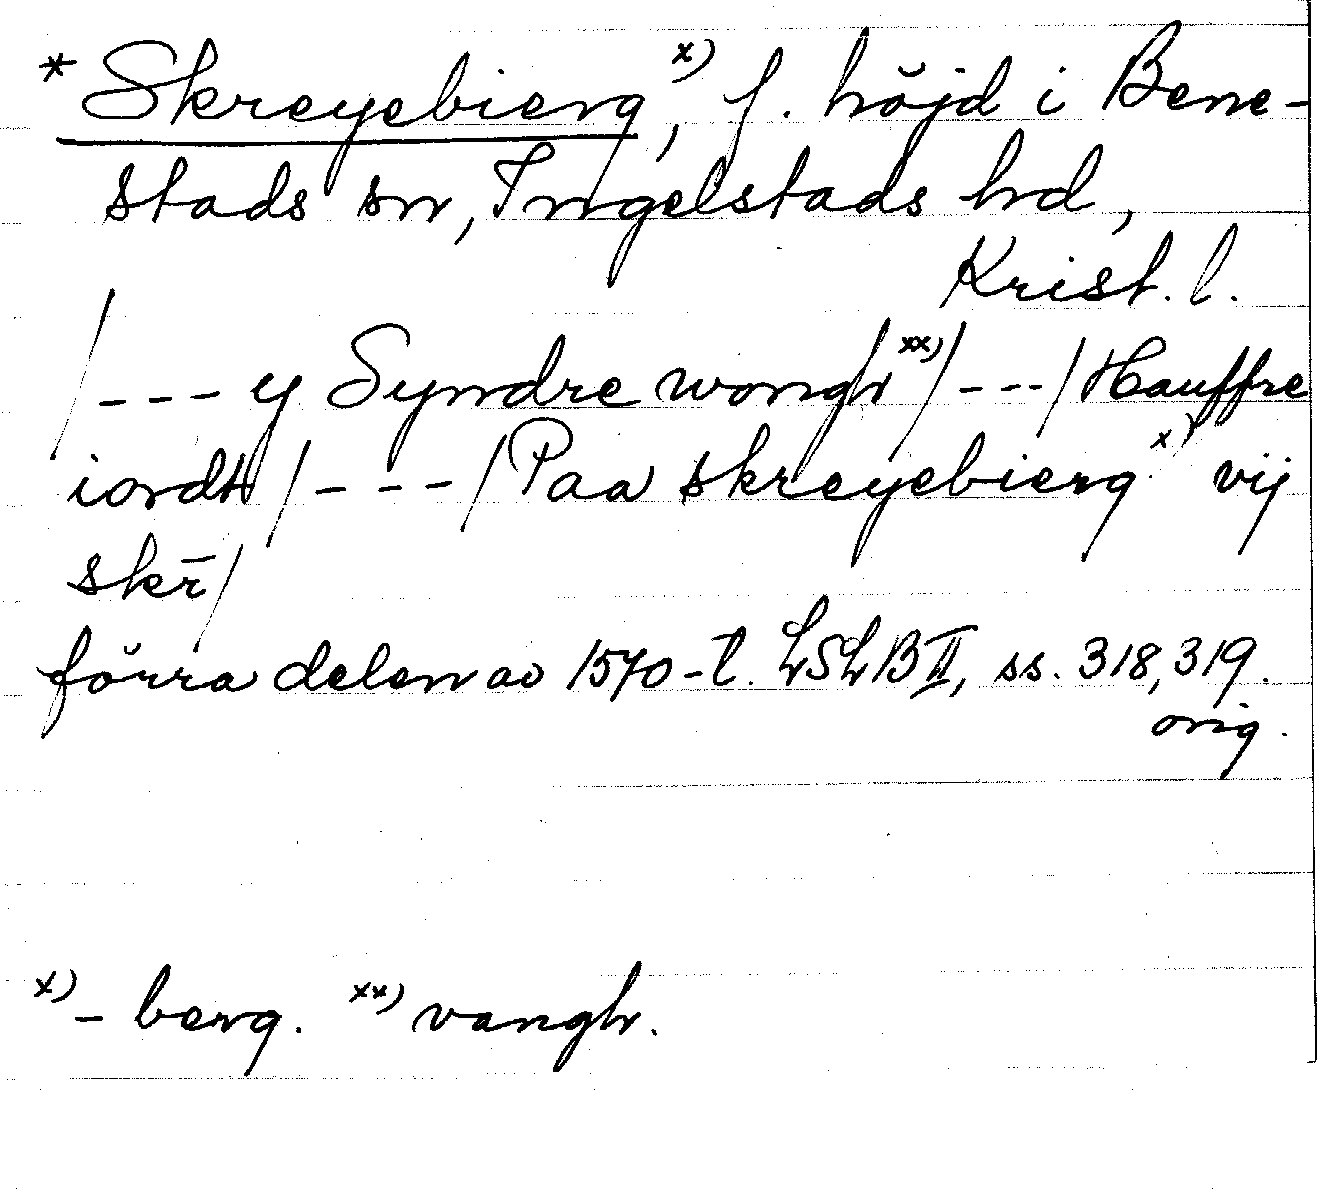 * Skreyebierg, x) f. höjd i Bene-
stads sn, Ingelstads hd,
Krist. l.
/--- y Syndre wongh xx)/---/Hauffre
iordt/---/Paa skreyebierg x) vij
skr̄/
förra delen av 1570-t. LSLB II, ss. 318, 319.
orig.
x) - berg. xx) vangh.